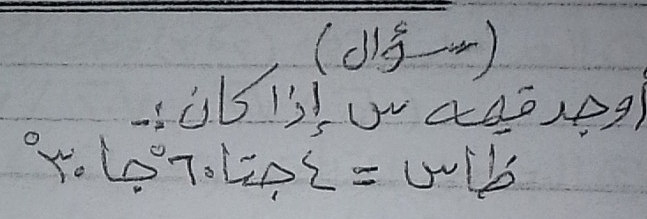 (سؤال)
أوجد قيمه س إذا كان :-
ظاس = ٤ جتا ٦٠° جا ٣٠°